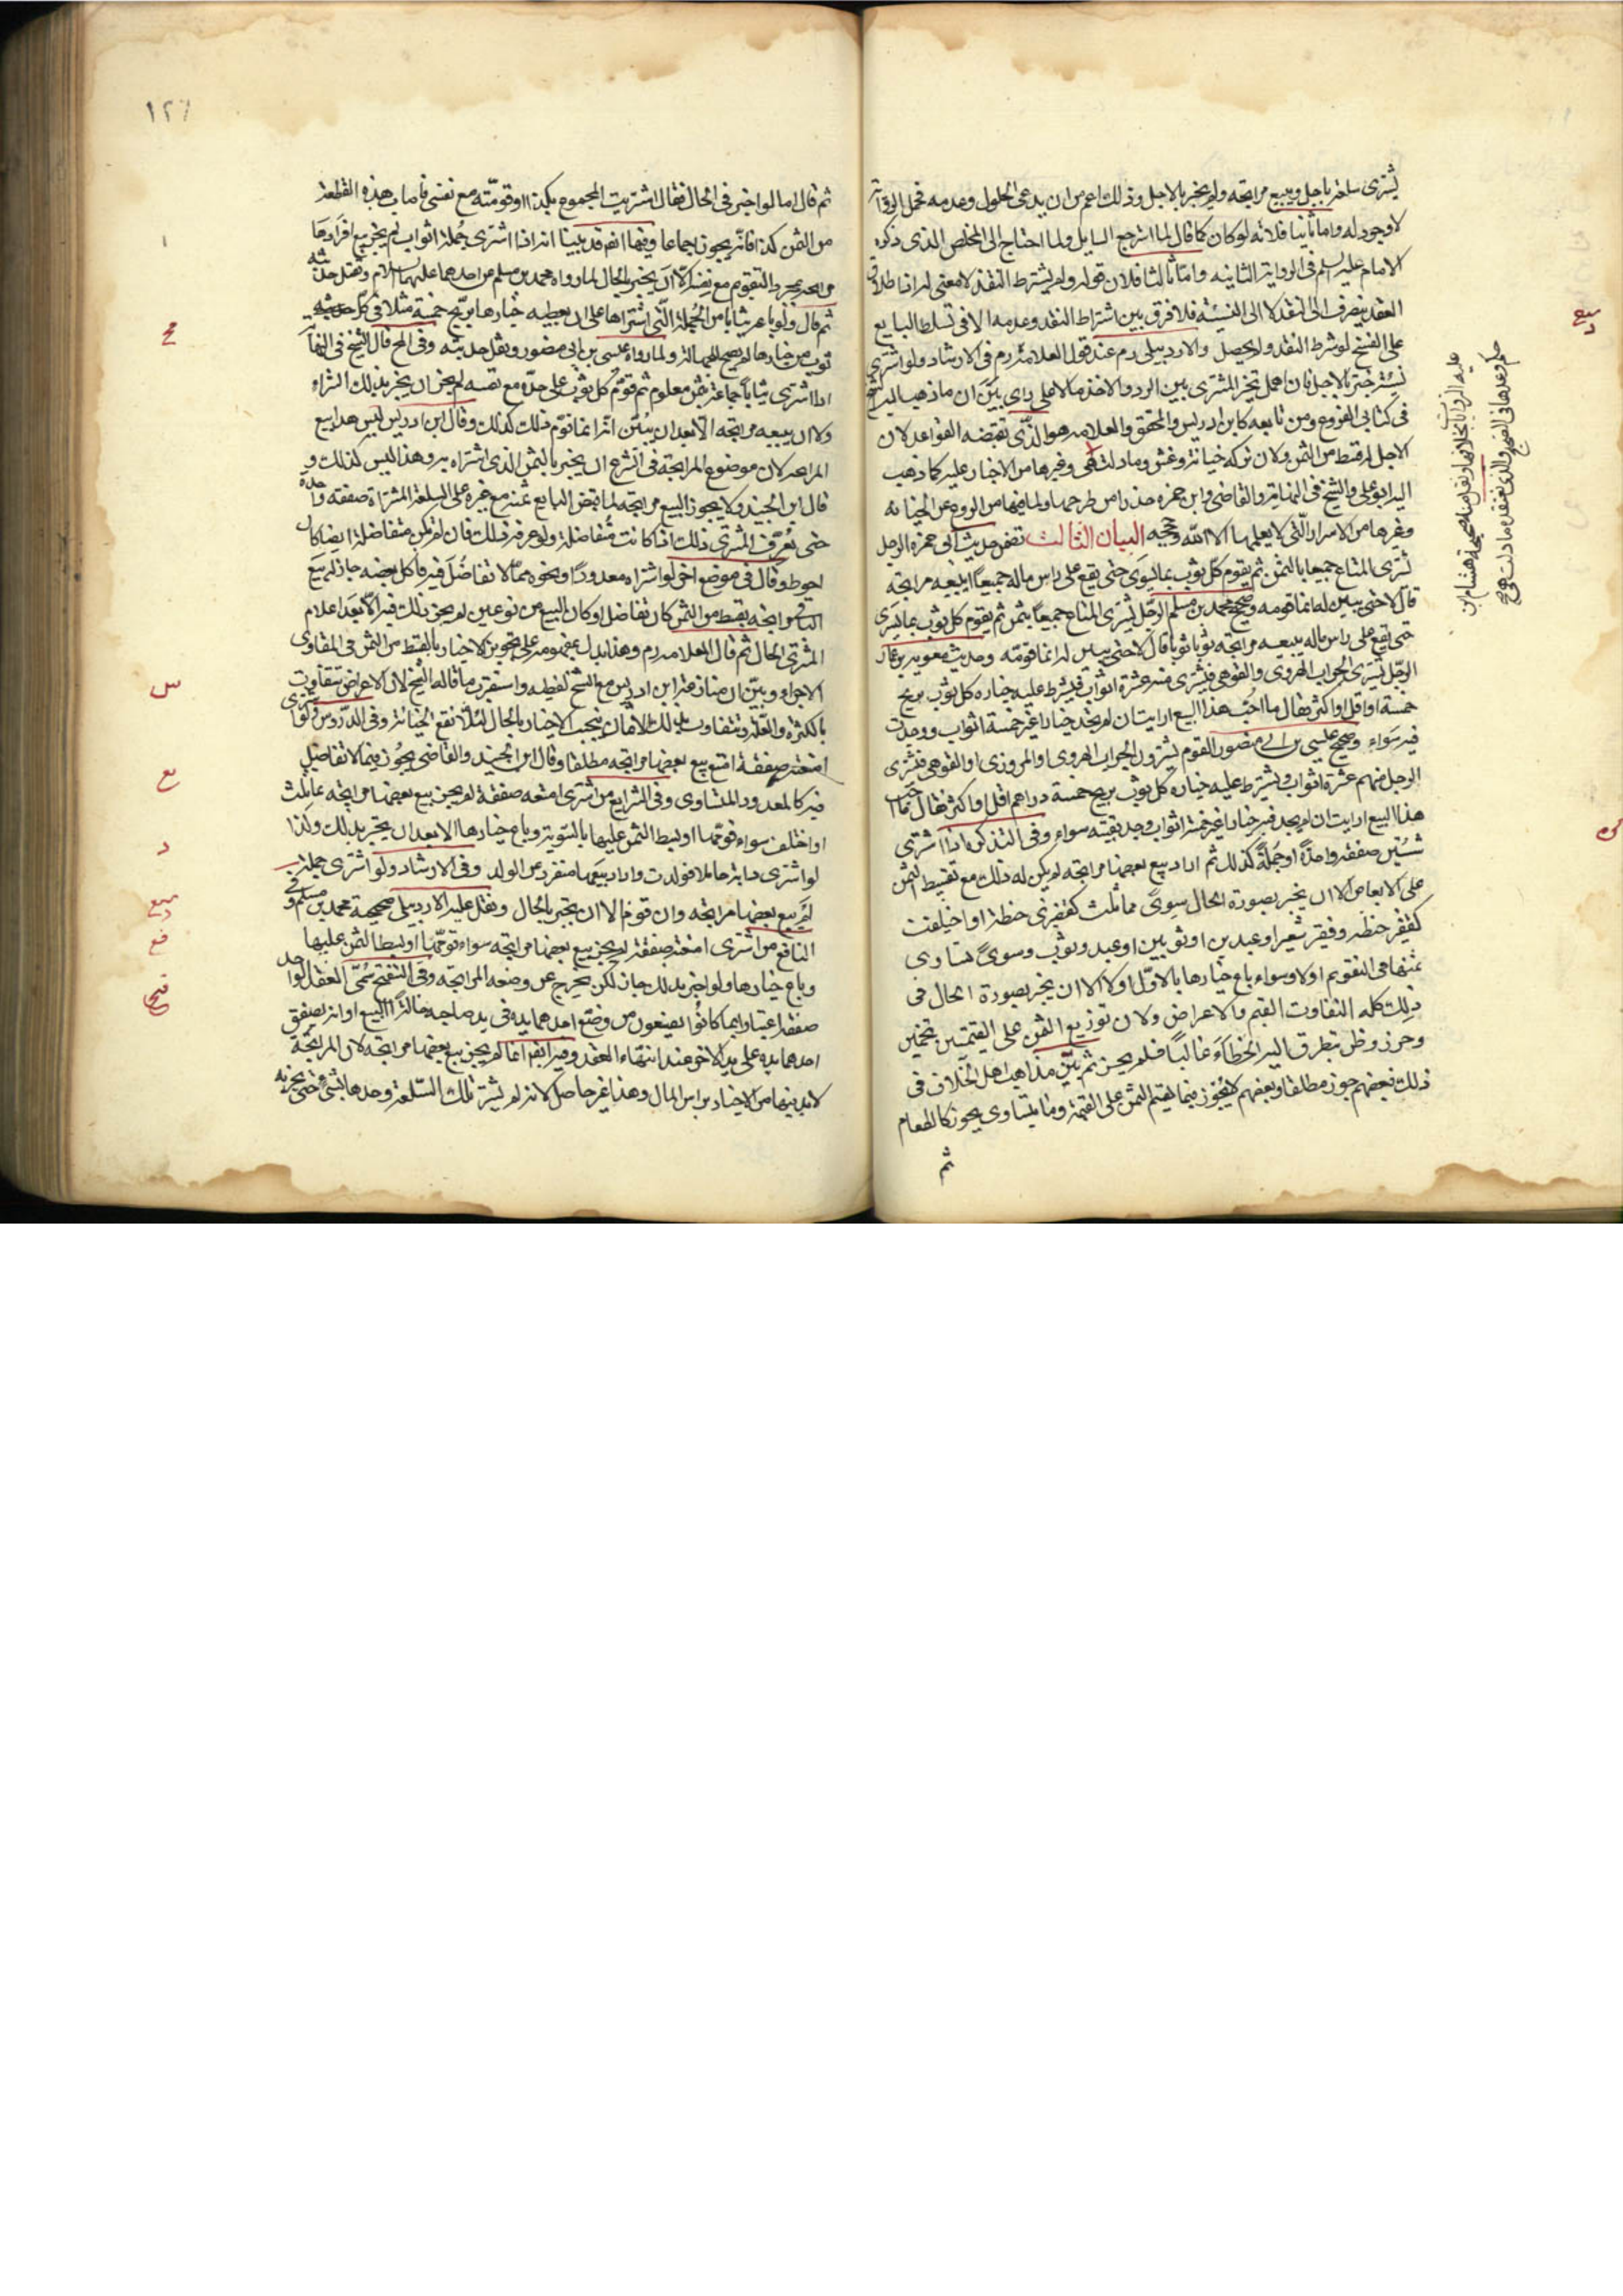 يشترى سلعة باجل ويبيع مرابحة ولم يخبر بالاجل وذلك اعم من ان يدعى الحلول وعدمه فحمل الرواية
لا وجود له واما ثانيا فلانه لو كان كما قال لما استرجع السايل ولما احتاج الى المخلص الذى ذكره
الامام عليه السلم فى الرواية الثانيه واما ثالثا فلان قوله ولم يشترط النقد لا معنى له اذ اطلاق
العقد ينصرف الى النقد لا الى النسيئة فلا فرق بين اشتراط النقد وعدمه الا فى تسلط البايع
على الفسخ لو شرط النقد ولم يحصل والاردبيلى رم عند قول العلامة رم فى الارشاد ولو اشترى
نسيئة اخبر بالاجل فان اهمل تخير المشترى بين الرد والاخذ حالا على راى بين ان ما ذهب اليه الشيخ
فى كتابى الفروع ومن تابعه كابن ادريس والمحقق والعلامه هو الذى تقتضيه القواعد لان
الاجل له قسط من الثمن ولان تركه خيانة وغش وما دلت هى وغيرها من الاخبار عليه كما ذهب
اليه ابو على والشيخ فى النهاية والقاضى وابن حمزه حذرا من طرحها ولما فيها من الردع عن الخيانه
وغيرها من الاسرار التى لا يعلمها الا الله وحججه البيان الثالث تضمن حديث ابى حمزه الرجل
يشترى المتاع جميعا بالثمن ثم يقوم كل ثوب بما يسوى حتى يقع على راس ماله جميعا ايبيعه مرابحة
قال لا حتى يبين له انما قومه وصحيح محمد بن مسلم الرجل يشترى المتاع جميعا بثمن ثم يقوم كل ثوب بما يسوى
حتى يقع على راس ماله يبيعه مرابحة ثوبا ثوبا قال لا حتى يبين له انما قومه وحديث معوية بن عمار
الرجل يشترى الجراب الهروى والقوهى فيشترى منه عشرة اثواب فيشترط عليه خياره كل ثوب بربح
خمسة او اقل او اكثر فقال ما احب هذا البيع ارايت ان لم يجد خيارا غير خمسة اثواب ووجدت
فيه سواء وصحيح عيسى بن ابى منصور القوم يشترون الجراب الهروى او المروزى او القوهى فيشترى
الرجل منهم عشرة اثواب ويشترط عليه خياره كل ثوب بربح خمسة دراهم اقل او اكثر فقال ما احب
هذا البيع ارايت ان لم يجد فيه خيارا غير خمسة اثواب وجد بقيته سواء وفى التذكره اذا اشترى
شيئين صفقة واحدة او جملة كذلك ثم اراد بيع بعضها مرابحة لم يكن له ذلك مع تقسيط الثمن
على الابعاض الا ان يخبر بصورة الحال سوى مماثلت كقفيزى حنطة او اختلفت
كقفيز حنطه وقفيز شعير او عبدين او ثوبين او عبد وثوب وسوى تساوى
ثمنهما فى التقويم اولا وسواء باع خيارها بالاول اولا الا ان يخبر بصورة الحال فى
ذلك كله التفاوت القيم والاعراض ولان توزيع الثمن على القيمتين تخمين
وحرز وظن يتطرق اليه الخطاء غالبا فلم يجز ثم بين مذاهب اهل الخلاف فى
ذلك فبعضهم جوز مطلقا وبعضهم لا يجوز فيما يقسم الثمن على القيمة وما يتساوى يجوز كالطعام
ثم
ثم قال اما لو اخبر فى الحال فقال اشتريت المجموع بكذا او قومته مع نفسى فاصاب هذه القطعة
من الثمن كذا فانه يجوز اجماعا وفيها انه قد بينا انه اذا اشترى جملة اثواب لم يجز بيع افرادها
مرابحة بمجرد التقويم مع نفسه الا ان يخبر بالحال لما رواه محمد بن مسلم عن احدهما عليهما السلام ونقل حديثه
ثم قال ولو باعه ثيابا من الجملة التى اشتراها على ان يعطيه خيارها بربح خمسة مثلا فى كل
ثوب من خيارها لم يصح للجهالة ولما رواه عيسى بن ابى منصور ونقل حديثه وفى المخ قال الشيخ فى النهاية
اذا اشترى ثيابا جماعة بثمن معلوم ثم قوم كل ثوب على حدة مع نفسه لم يجز ان يخبر بذلك الشراء
ولا ان يبيعه مرابحة الا بعد ان يبين انه انما قوم ذلك كذلك وقال ابن ادريس ليس هذا بيع
المرابحة لان موضوع المرابحة فى الشرع ان يخبر بالثمن الذى اشتراه به وهذا ليس كذلك و
قال ابن الجنيد ولا يجوز البيع مرابحة لما قبض البايع ثمنه مع غيره على السلعة المشتراة صفقه واحدة
حتى يعرف المشترى ذلك اذا كانت متفاضلة ولو عرفه ذلك فان لم تكن متفاضلة ايضا كان
احوط وقال فى موضع اخر لو اشتراه معدودا ونحوه مما لا تفاضل فيه فاكل بعضه جاز له بيع
الباقى مرابحة بقسطه من الثمن كان تفاضل او كان البيع من نوعين لم يجز ذلك فيه الا بعد اعلام
المشترى الحال ثم قال العلامة رم وهذا يدل بمفهومه على تجويز الاخبار بالقسط من الثمن فى المتساوى
الاجزاء وبين ان منازعة ابن ادريس مع الشيخ لفظيه واستقرب ما قاله الشيخ لان الاعراض تتفاوت
بالكثرة والقلة وتتفاوت بذلك الاثمان فيجب الاخبار بالحال لئلا تقع الخيانة وفى الدروس ولو اشترى
امتعة صفقة امتنع بيع بعضها مرابحه مطلقا وقال ابن الجنيد والقاضى يجوز فيما لا تفاضل
فيه كالمعدود المتساوى وفى الشرايع من اشترى امتعه صفقة لم يجز بيع بعضها مرابحه تماثلت
او اختلفت سواء قومها او بسط الثمن عليها بالسوية وباع خيارها الا بعد ان يخبر بذلك ولذا
لو اشترى دابة حاملا فولدت واراد بيعها منفردة عن الولد وفى الارشاد ولو اشترى جملة
لم يبع بعضها مرابحه وان قوم الا ان يخبر بالحال ونقل عليه الاردبيلى صحيحة محمد بن مسلم وفى
النافع من اشترى امتعة صفقة لم يجز بيع بعضها مرابحه سواء قومها او بسط الثمن عليها
وباع خيارها ولو اخبر بذلك جاز لكن يخرج عن وضعه المرابحه وفى التنقيح سمى العقد الواحد
صفقة اعتبارا بما كانوا يصنعون من وضع احدهما يده فى يد صاحبه حالة البيع او انه يصفق
احدهما يده على يد الاخر عند انتهاء العقد وفيه ايضا انما لم يجز بيع بعضها مرابحه لان المرابحة
لابد فيها من الاخبار براس المال وهذا غير حاصل لانه لم يشتر تلك السلعة وحدها بشىء حتى يخبر به